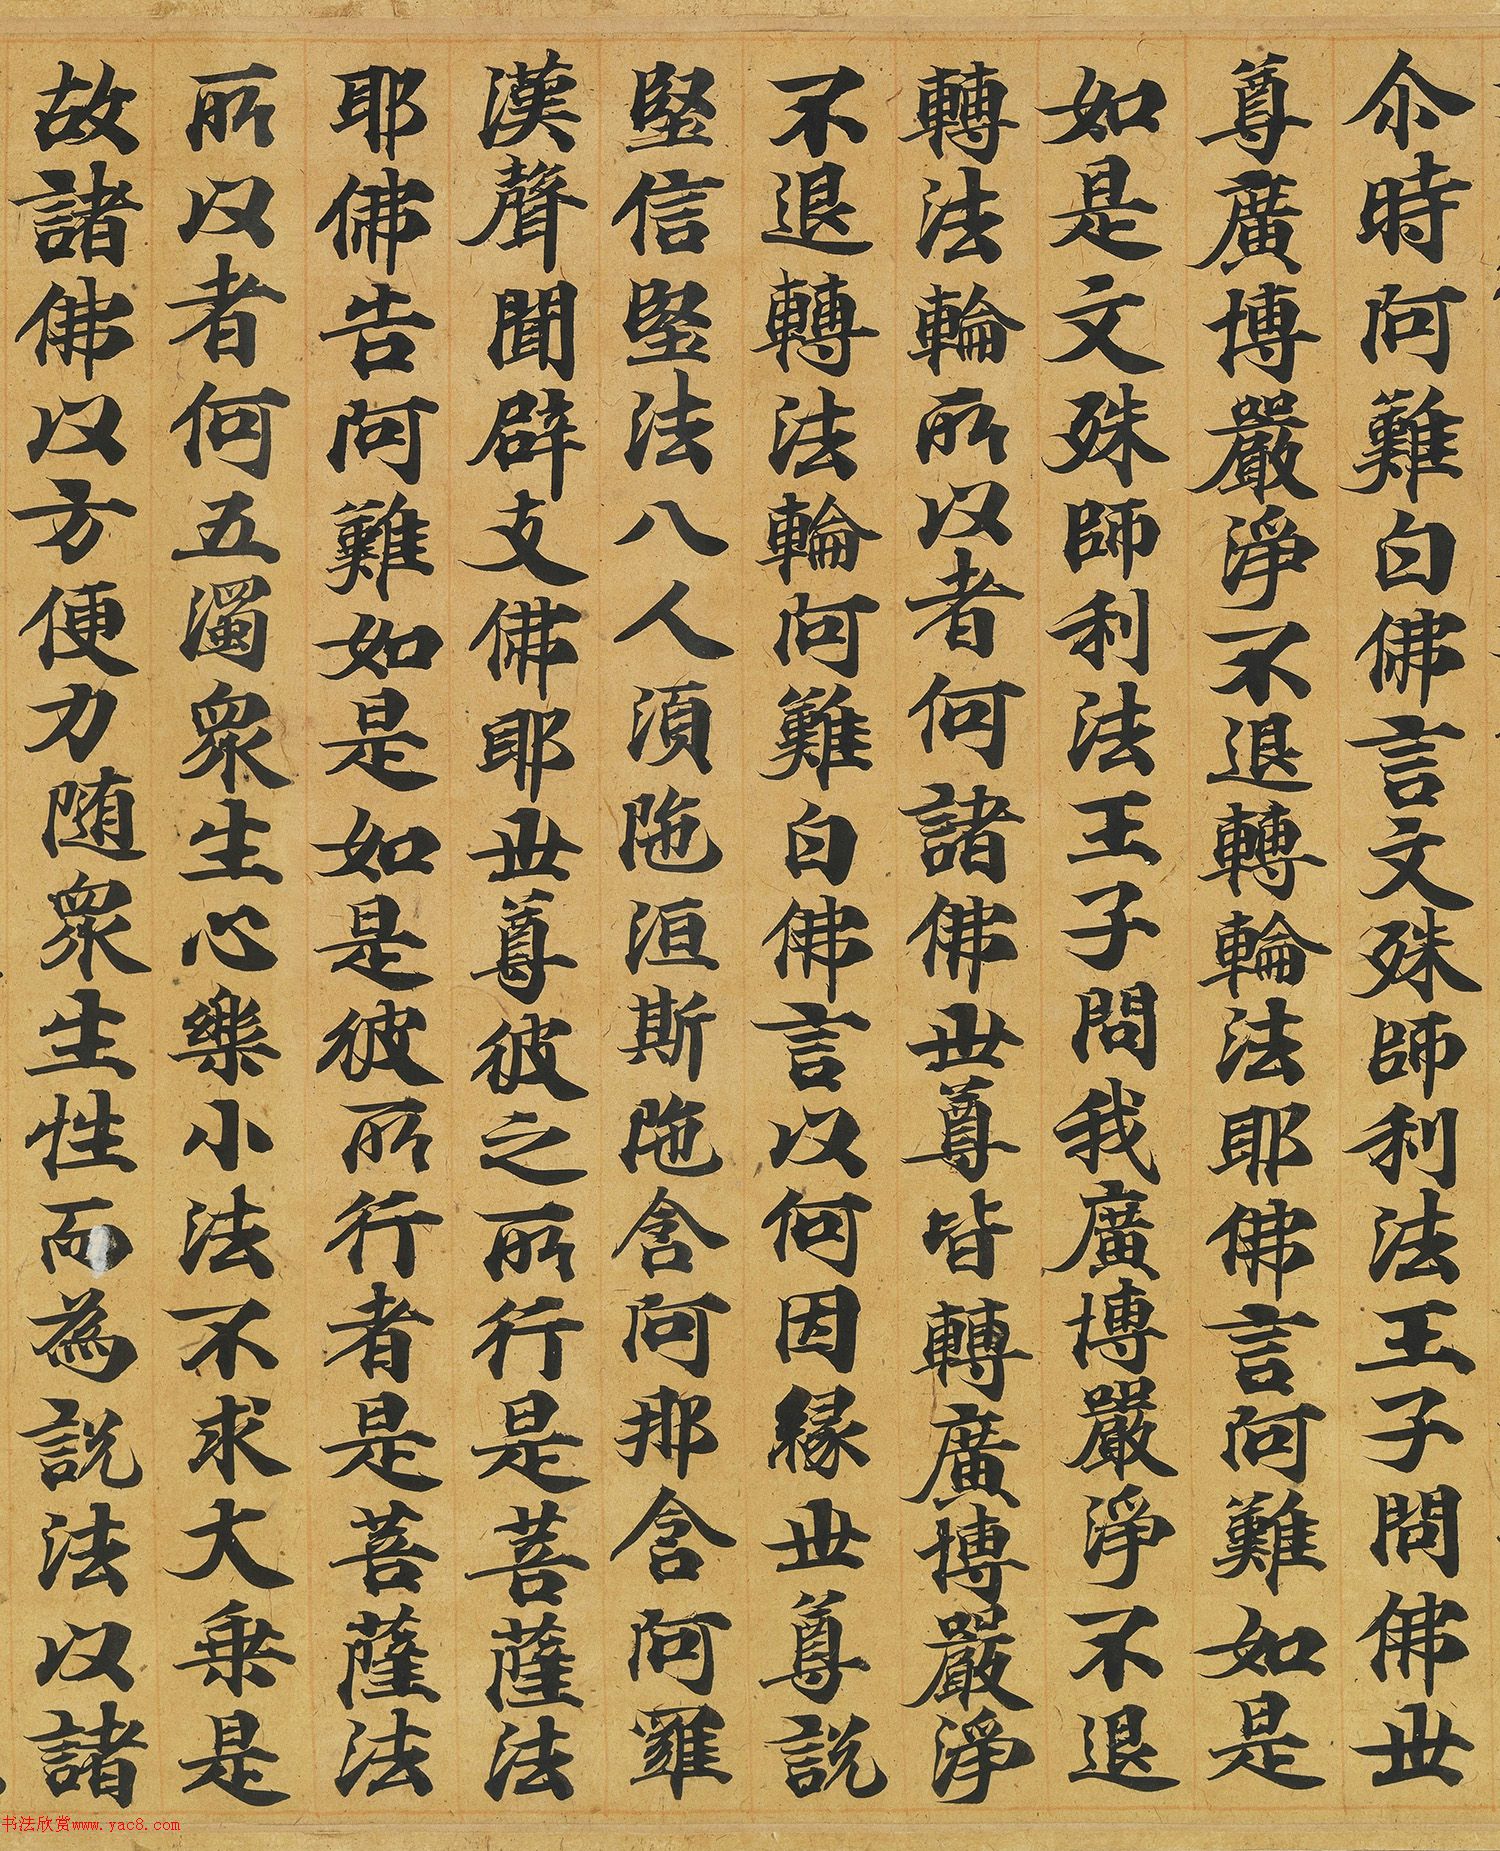 尒時阿難白佛言文殊師利法王子問佛世
尊廣博嚴淨不退轉輪法耶佛言阿難如是
如是文殊師利法王子問我廣博嚴淨不退
轉法輪所以者何諸佛世尊皆轉廣博嚴淨
不退轉法輪阿難白佛言以何因緣世尊說
堅信堅法八人須陁洹斯陁含阿那含阿羅
漢聲聞辟支佛耶世尊彼之所行是菩薩法
耶佛告阿難如是如是彼所行者是菩薩法
所以者何五濁眾生心樂小法不求大乘是
故諸佛以方便力随眾生性而為說法以諸
书法欣赏www.yac8.com